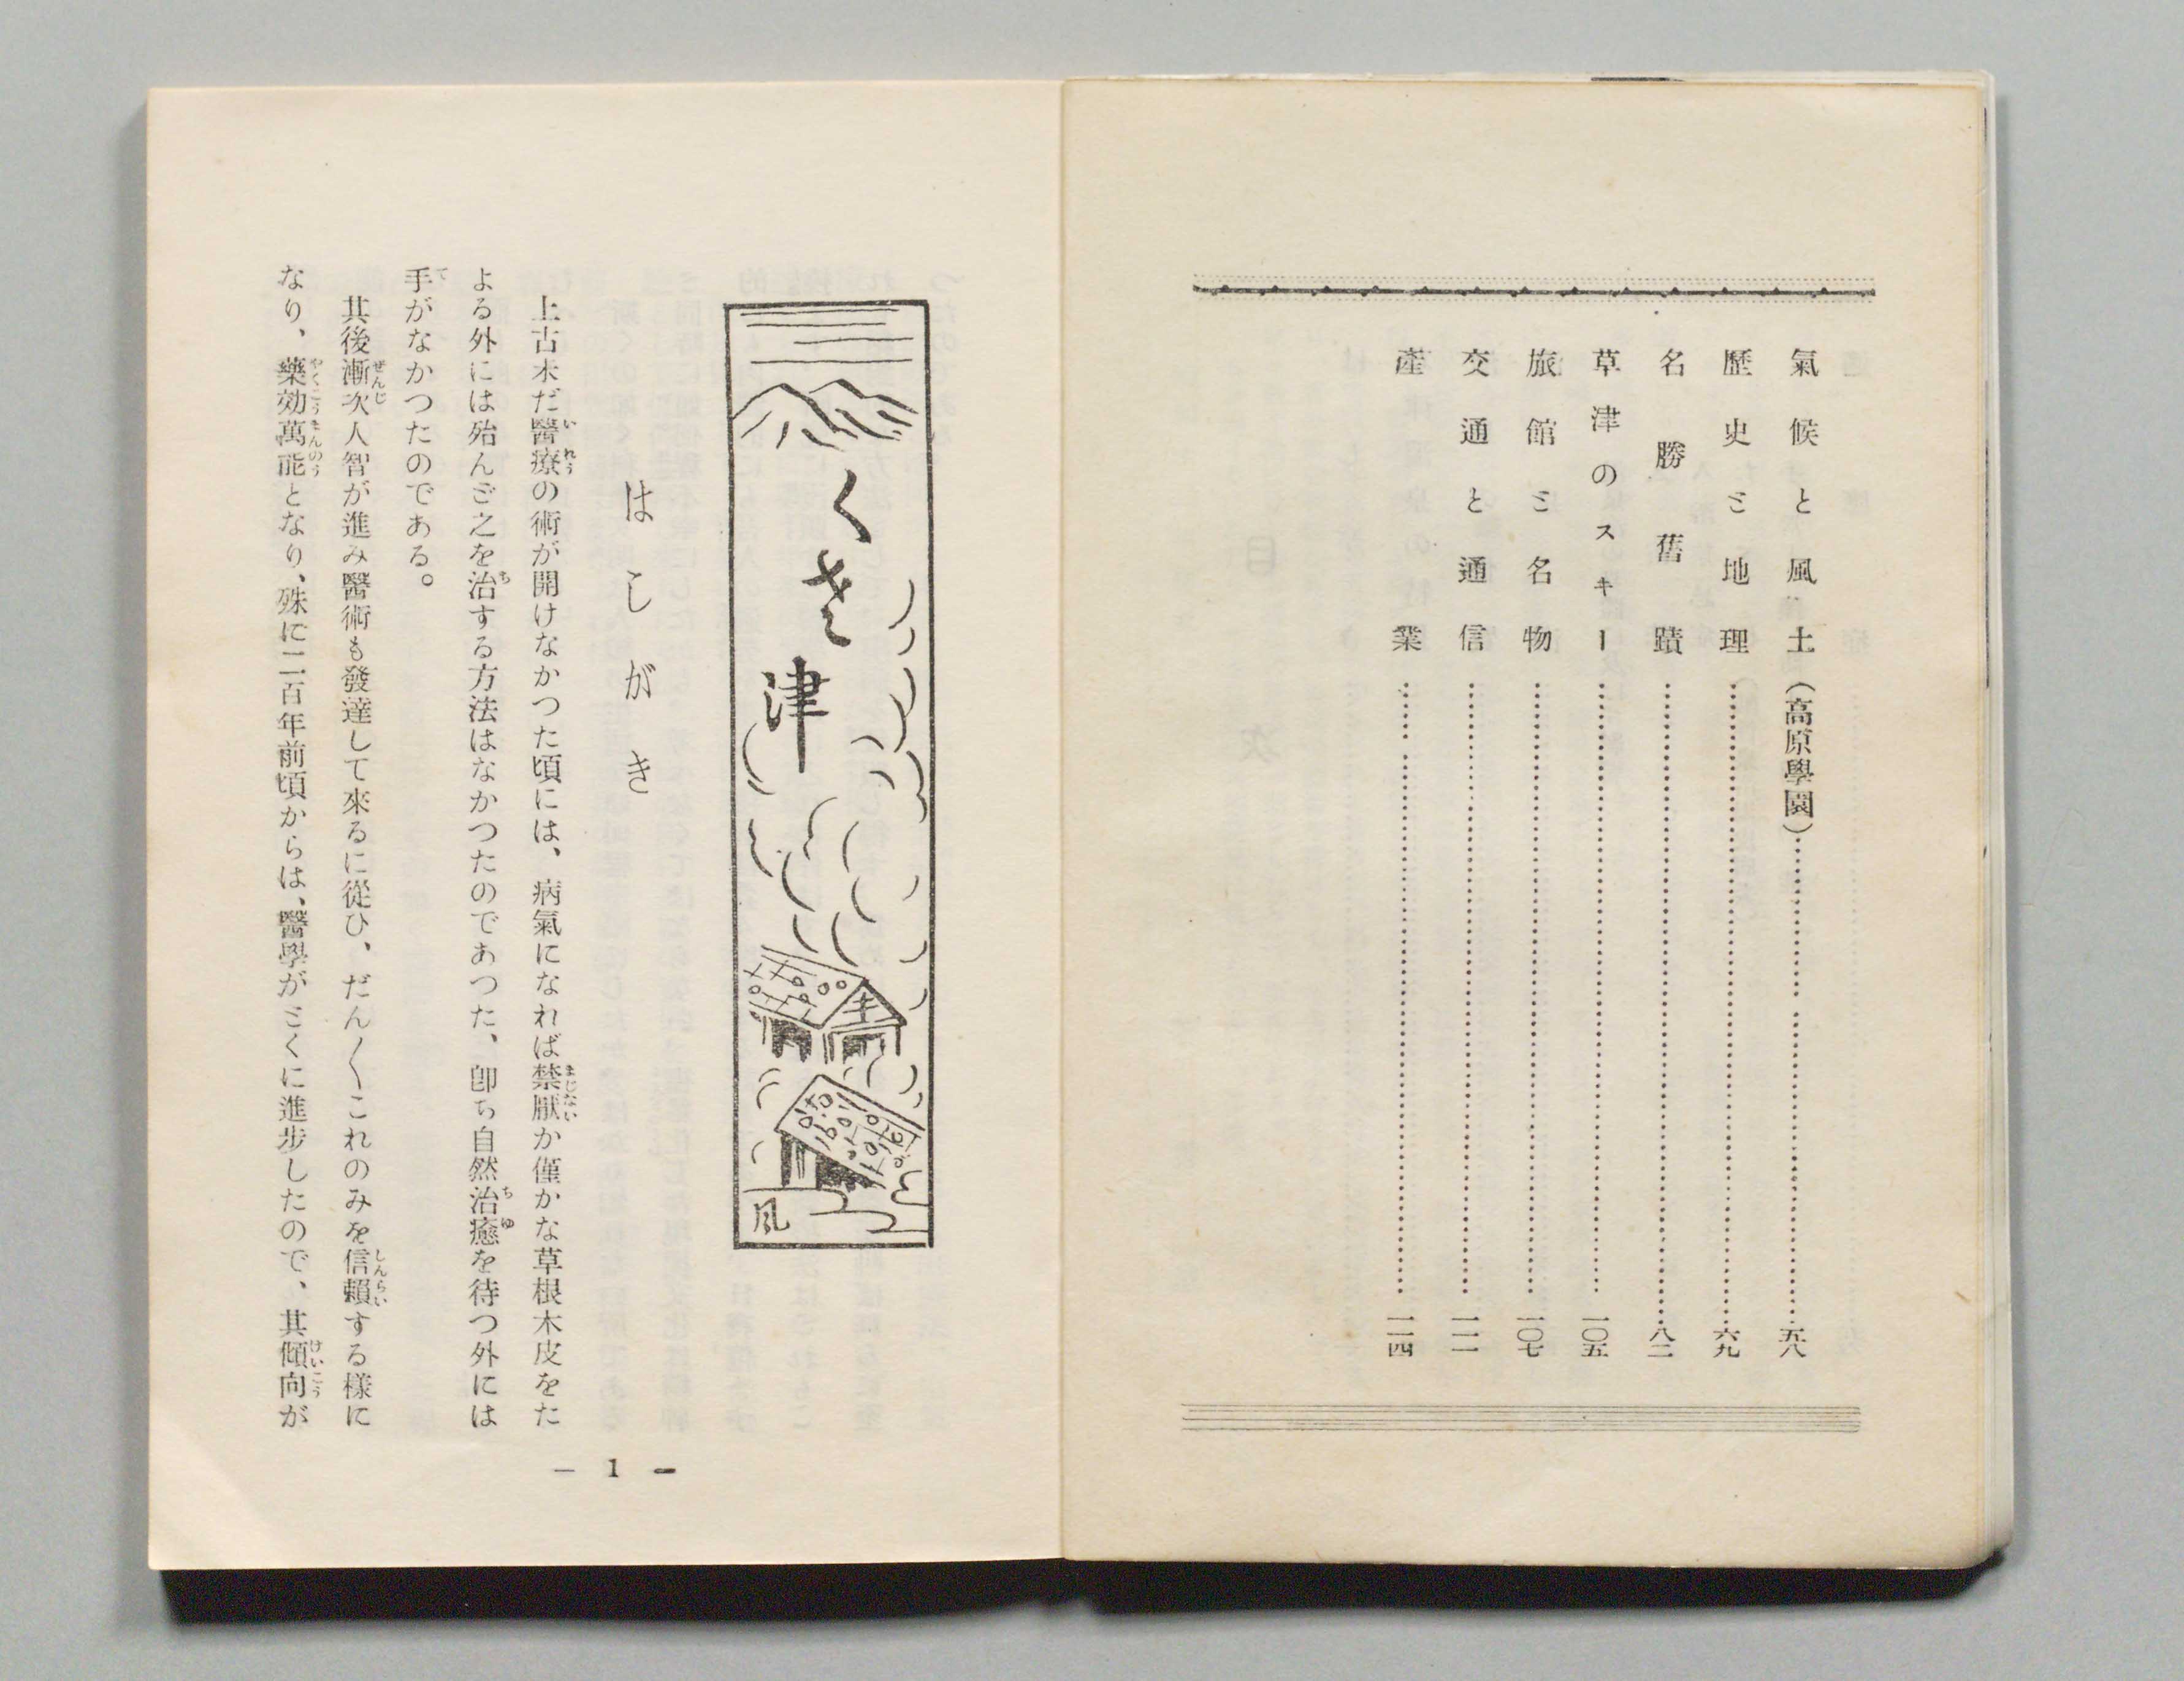 氣候と風土(高原學園)……五八
歷史ミ地理……六九
名勝舊蹟……八二
草津のスキー……一〇五
旅館ミ名物……一〇七
交通と通信……一一一
產業……一一四
くさ津
風
はしがき
上古未だ醫療の術が開けなかつた頃には、病氣になれば禁厭か僅かな草根木皮をた
よる外には殆んど之を治する方法はなかつたのであつた、卽ち自然治癒を待つ外には
手がなかつたのである。
其後漸次人智が進み醫術も發達して來るに從ひ、だん〳〵これのみを信賴する樣に
なり、藥効萬能となり、殊に二百年前頃からは、醫學がミくに進步したので、其傾向が
― 1 ―